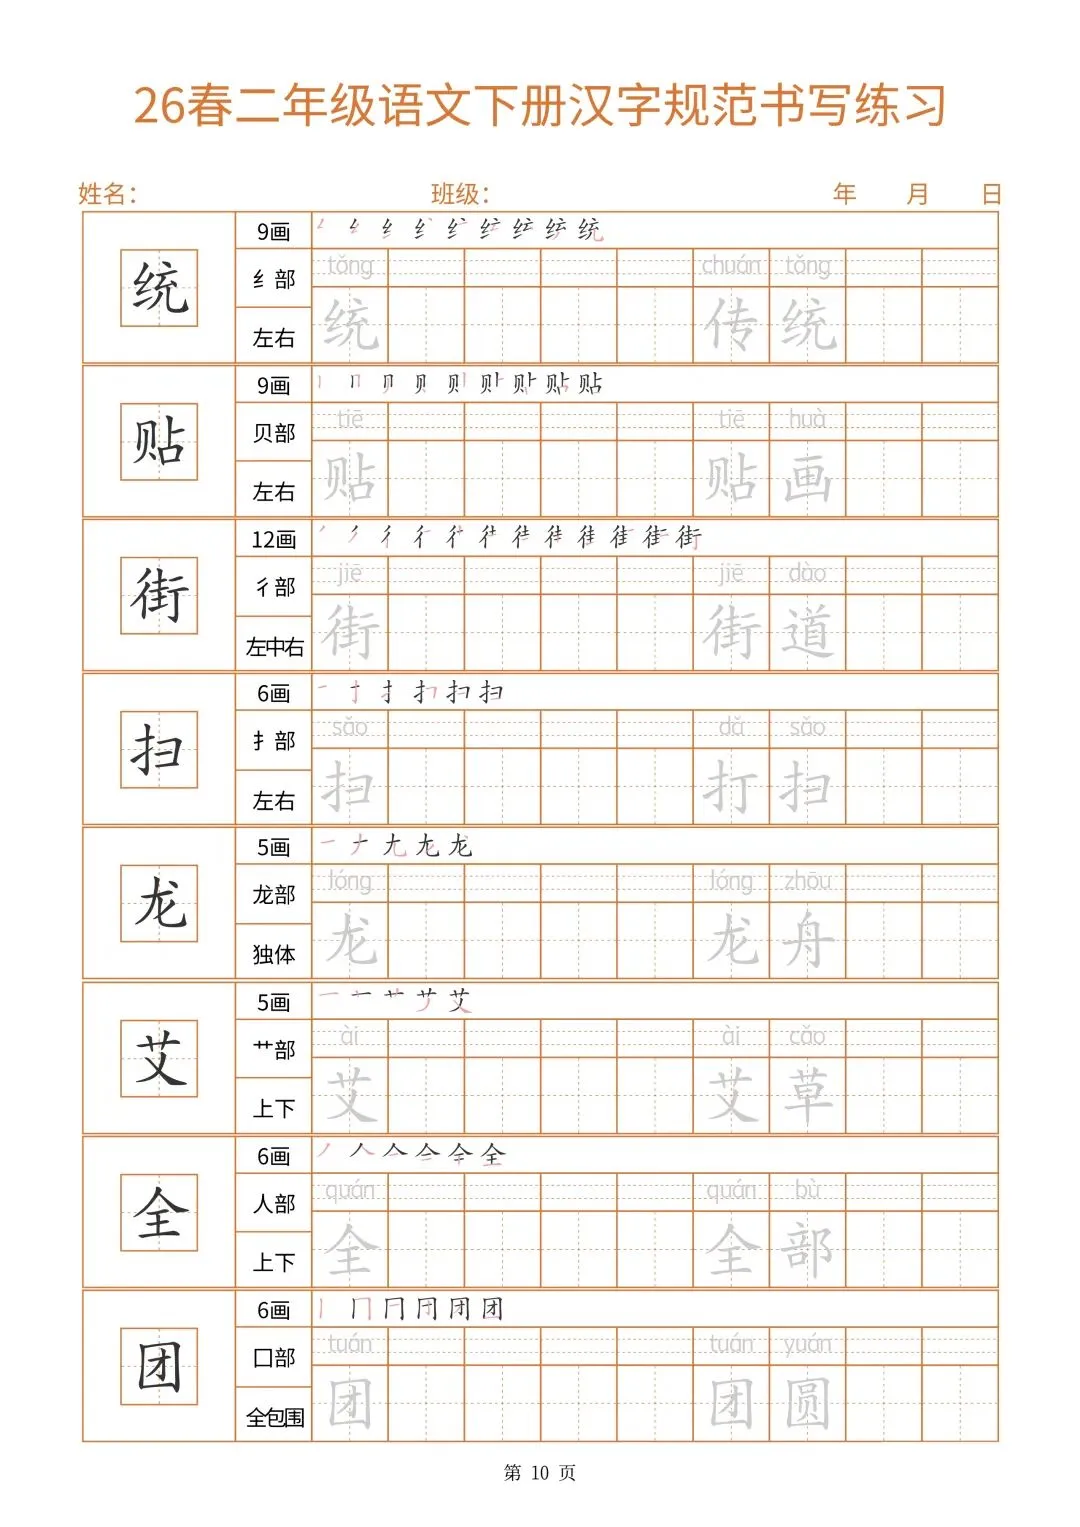 26春二年级语文下册汉字规范书写练习
姓名： 班级： 年 月 日
统
9画
纟部
左右
tǒng chuán tǒng
统 传 统
贴
9画
贝部
左右
tiē tiē huà
贴 贴 画
街
12画
彳部
左中右
jiē jiē dào
街 街 道
扫
6画
扌部
左右
sǎo dǎ sǎo
扫 打 扫
龙
5画
龙部
独体
lóng lóng zhōu
龙 龙 舟
艾
5画
艹部
上下
ài ài cǎo
艾 艾 草
全
6画
人部
上下
quán quán bù
全 全 部
团
6画
囗部
全包围
tuán tuán yuán
团 团 圆
第 10 页